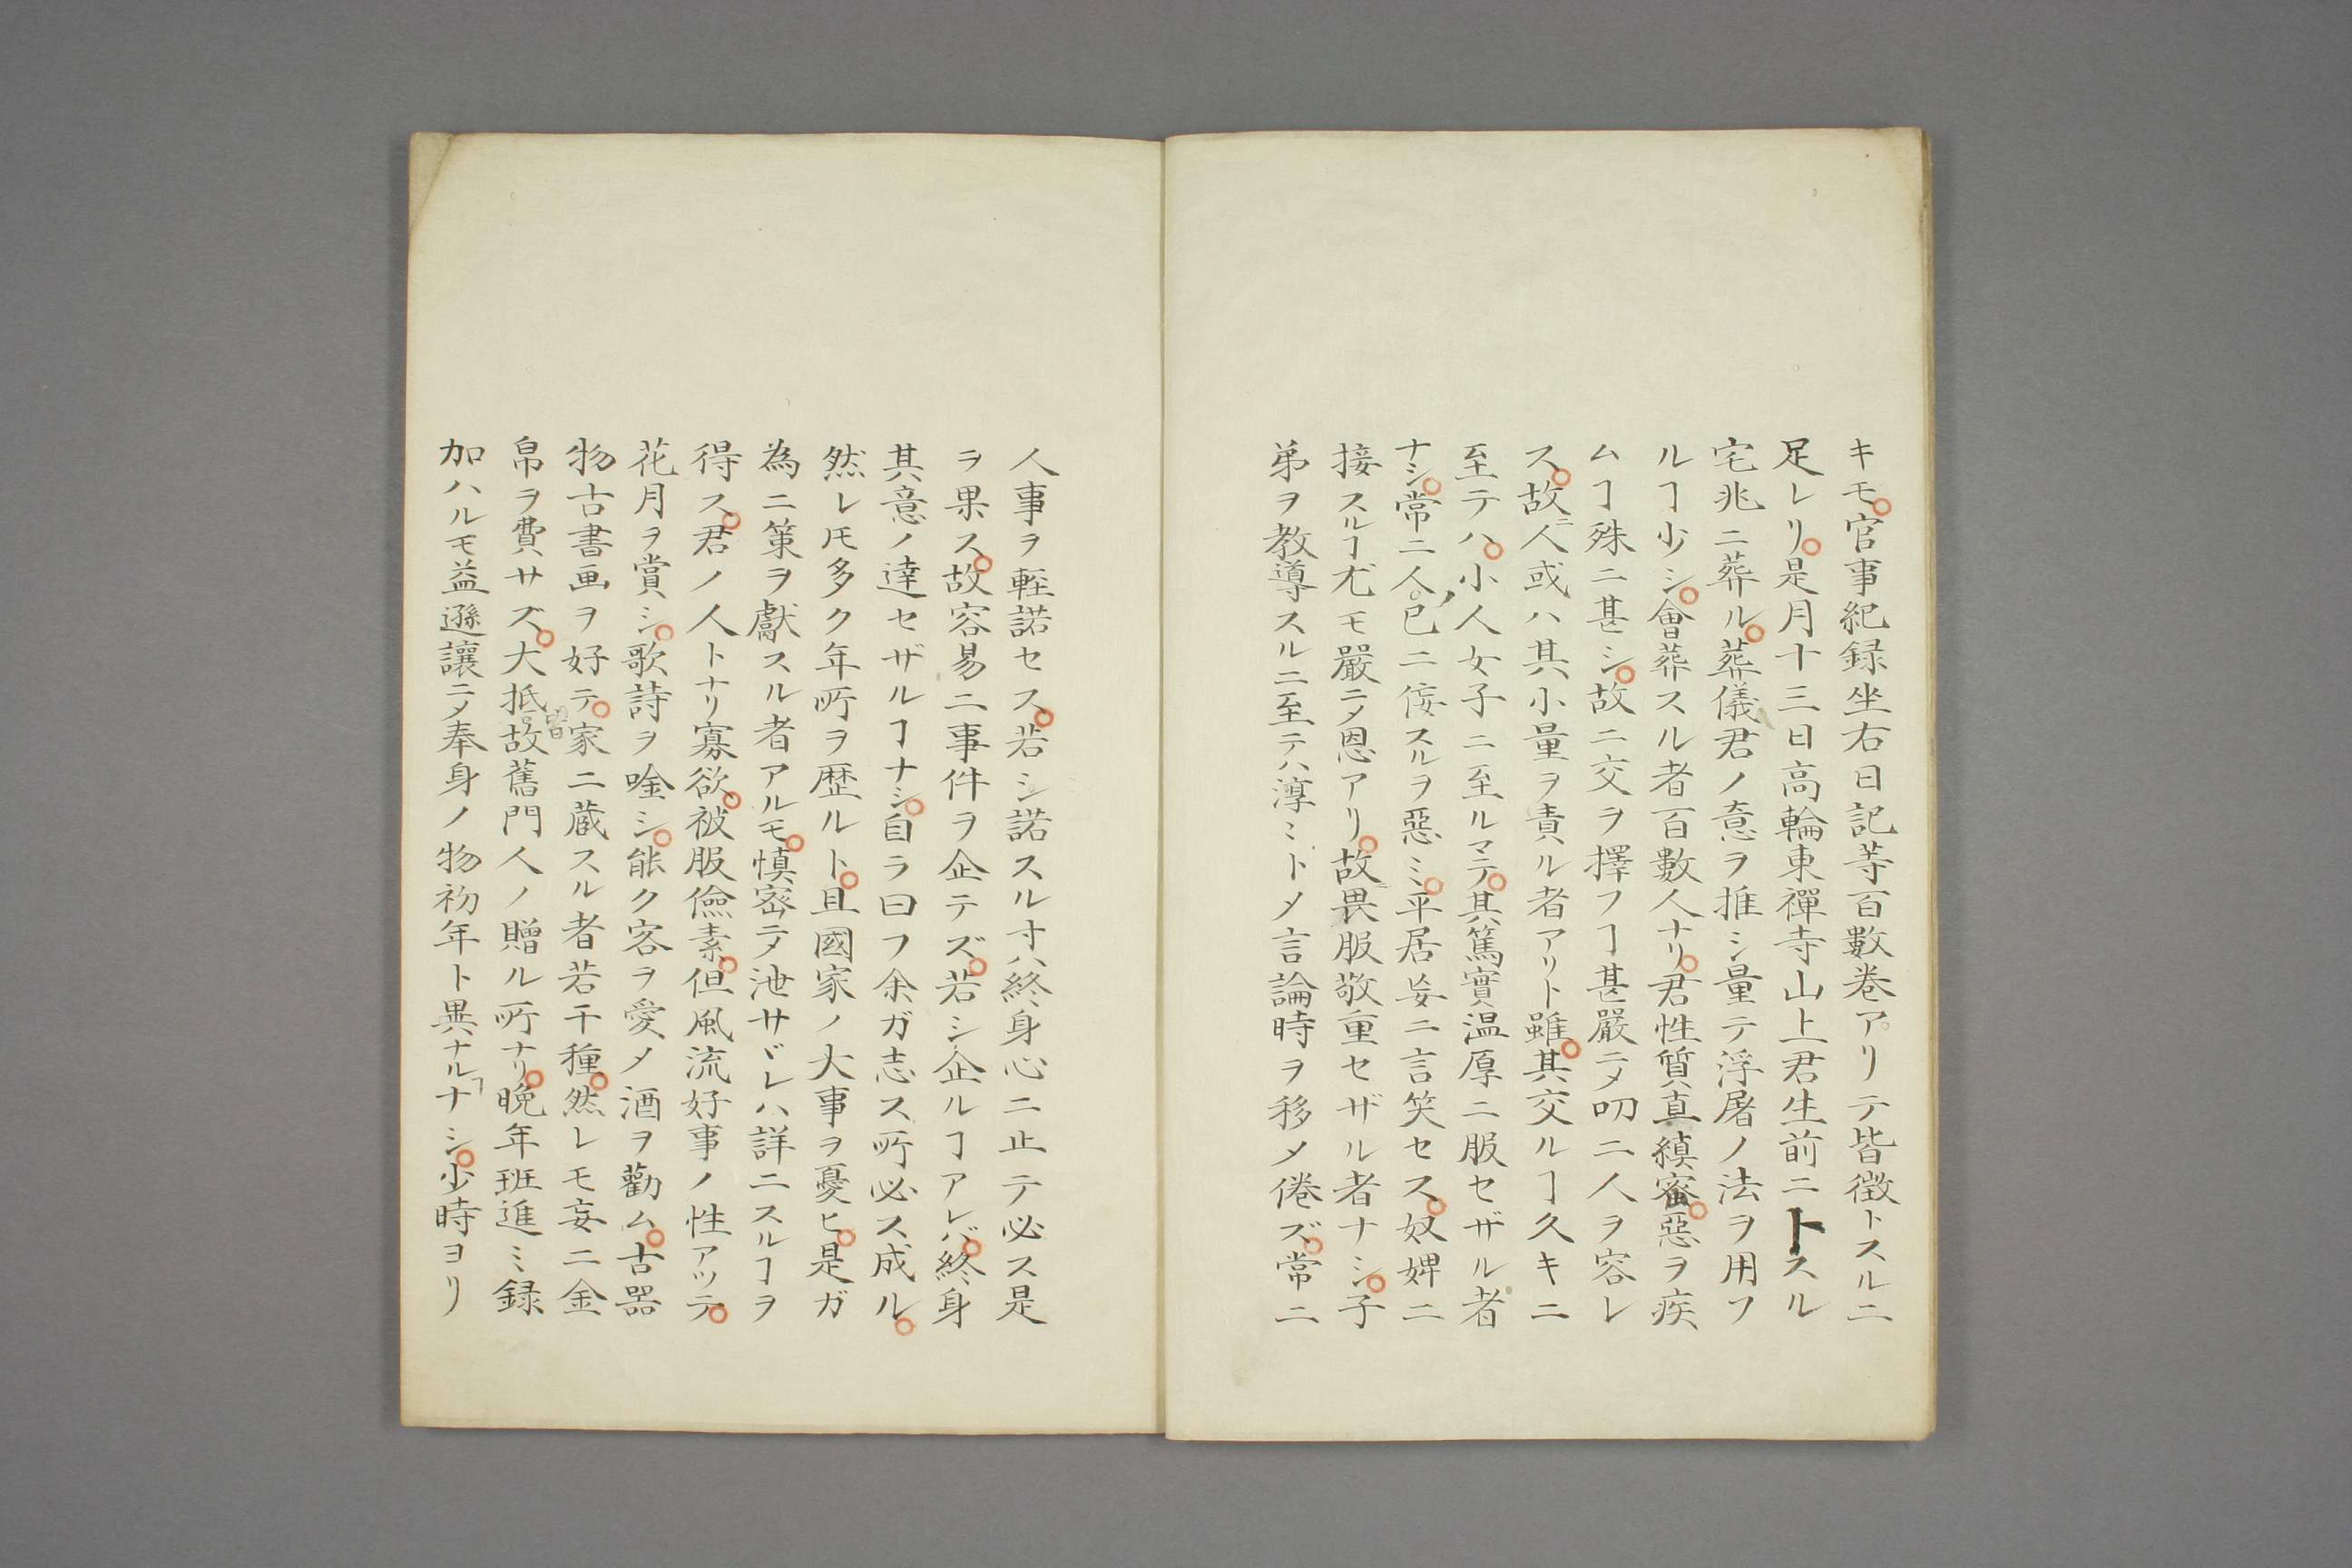 キモ。官事紀録坐右日記等百數巻アリテ皆徴トスルニ
足レリ。是月十三日高輪東禪寺山上君生前ニ卜スル
宅兆ニ葬ル。葬儀君ノ意ヲ推シ量テ浮屠ノ法ヲ用フ
ルヿ少シ。會葬スル者百數人ナリ。君性質真縝密。惡ヲ疾
ムヿ殊ニ甚シ。故ニ交ヲ擇フヿ甚嚴ニ〆叨ニ人ヲ容レ
ス。故ニ人或ハ其小量ヲ責ル者アリト雖。其交ルヿ久キニ
至テハ。小人女子ニ至ルマテ。其篤實温厚ニ服セザル者
ナシ。常ニ人ノ己ニ侫スルヲ惡ミ。平居妄ニ言笑セス。奴婢ニ
接スルヿ尤モ嚴ニ〆恩アリ。故畏服敬重セザル者ナシ。子
弟ヲ教導スルニ至テハ淳ミト〆言論時ヲ移〆倦ズ。常ニ
人事ヲ輕諾セス。若シ諾スル寸ハ終身心ニ止テ必ス是
ヲ果ス。故容易ニ事件ヲ企テズ。若シ企ルヿアレバ。終身
其意ノ達セザルヿナシ。自ラ曰フ余ガ志ス所必ス成ル。
然レ𪜈多ク年所ヲ歴ルト。且國家ノ大事ヲ憂ヒ。是ガ
為ニ策ヲ獻スル者アルモ。慎密ニ〆泄サヾレハ詳ニスルヿヲ
得ス。君ノ人トナリ寡欲。被服儉素。但風流好事ノ性アツテ。
花月ヲ賞シ。歌詩ヲ唫シ。能ク客ヲ愛〆酒ヲ勸ム。古器
物古書画ヲ好テ。家ニ蔵スル者若干種。然レモ妄ニ金
帛ヲ費サズ。大抵故舊門人ノ贈ル所ナリ。晩年班進ミ録
加ハルモ益遜讓ニ〆奉身ノ物初年ト異ナルヿナシ。少時ヨリ